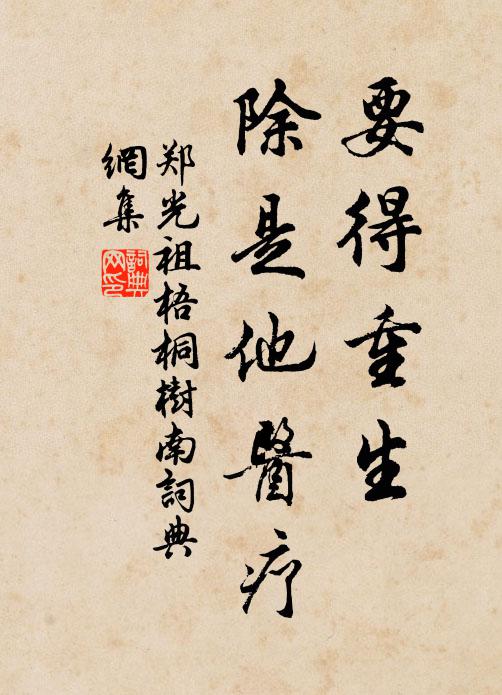 要得重生
除是他醫疗
郑光祖梧桐樹南詞典
網集
詞典
网印